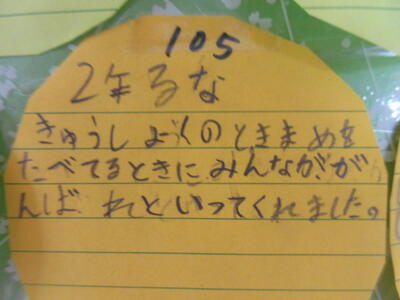 105
2年るな
きゅうしょくのときまめを
たべてるときにみんながが
んばれといってくれました。